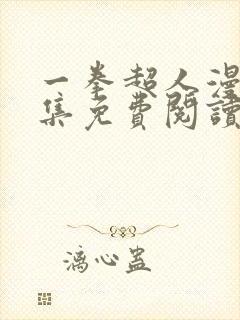 一拳超人漫
集免費閱讀
漓心蛊